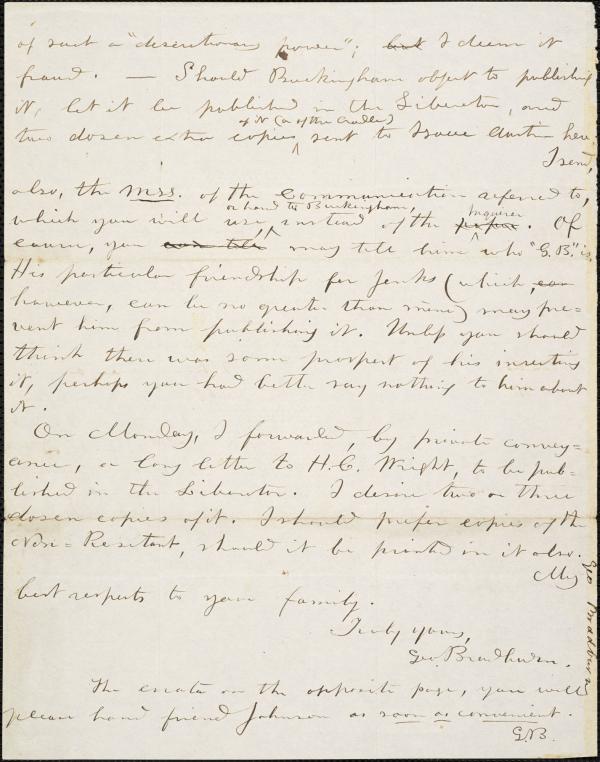 of such a "discretionary power"; but I deem it
fraud. — Should Buckingham object to publishing
it, let it be published in the Liberator, and
of it (or of the Cradle)
two dozen extra copies ^ sent to Isaac Austin here
I send,
also, the mss. of the communication referred to,
or hand to Buckingham, Inquirer
which you will use, ^ instead of the paper. Of
course, you can tell ^ may tell him who "G.B." is.
His particular friendship for Jenks (which, can
however, can be no greater than mine) may pre=
vent him from publishing it. Unless you should
think there was some prospect of his inserting
it, perhaps you had better say nothing to him about
it.
On Monday, I forwarded, by private convey=
ance, a long letter to H.C. Wright, to be pub=
lished in the Liberator. I desire two or three
dozen copies of it. I should prefer copies of the
Non=Resistant, should it be printed in it also.
My
best respects to your family.
Truly yours,
Geo. Bradburn.
The errata on the opposite page, you will
please hand friend Johnson as soon as convenient.
G.B.
Geo Bradburn